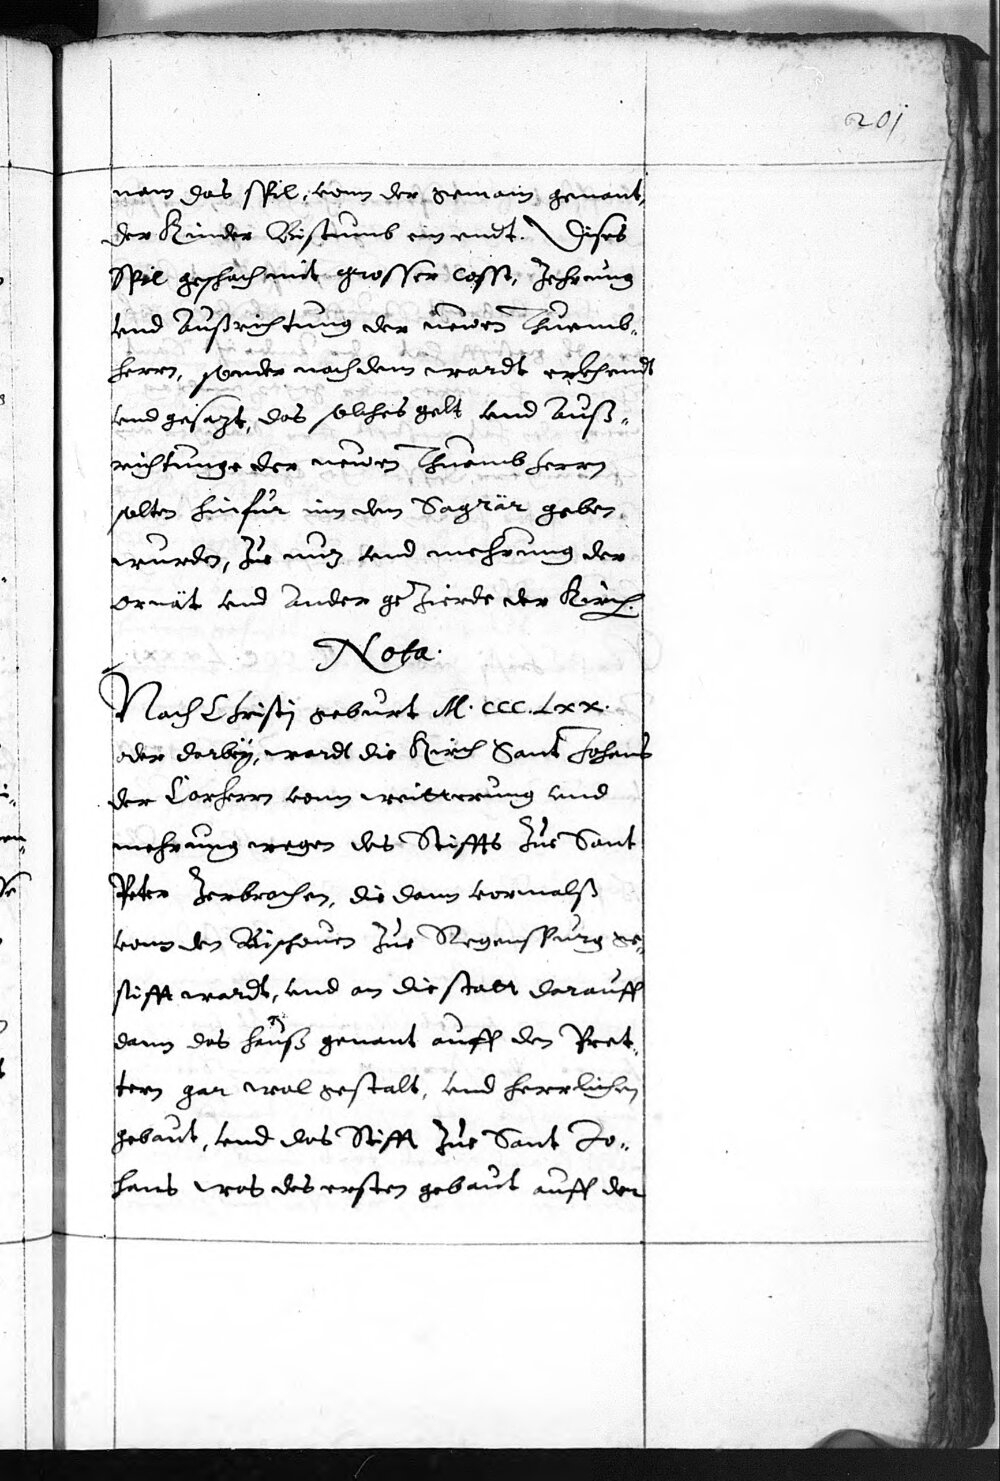 201
nam das spil, vonn der gemain genant,
der Kinder Bistumb ein endt. Dises
Spil geschach mit grosser cosst, Zehrung
vnd Außrichtung der newen Thuemb„
herrn, sonder nachdem wardt erkhendt
vnd gesazt, das solches gelt vnd Auß„
richtunge der newen Thuemb herrn
solten hinfür inn den Sagrär geben
wurden, Zue nuz vnd mehrung der
ornät vnd Ander ge Zierde der Kirch.
Nota.
Nach Christj geburt M. CCC. Lxx.
oder darbey, wardt die Kirch Sant Johans
der Corherrn vonn weitterung vnd
mehrung wegen des Stiffts Zue Sant
Peter Zerbrochen, die dann vormalß
vonn den Bischouen Zue Regenspurg ge„
stifft wardt, vnd an die statt darauff
dann das hauß genant auff den Pret„
tern gar wol gestalt, vnd herrlichen
gebaut, vnd das Stifft Zue Sant Jo„
hans was des ersten gebaut auff der